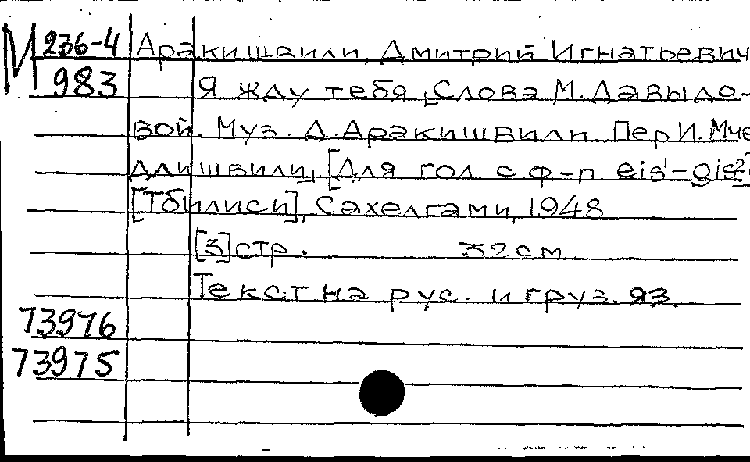 М 236-4 Аракишвили, Дмитрий Игнатьевич
983 Я жду тебя. Слова М. Давыдо-
вой. Муз. Д. Аракишвили. Пер И. Мче
длишвили, [Для гол с ф-п eis¹-gis²]
[Тбилиси], Сахелгами, 1948
[3] стр. 32 см
Текст на рус. и груз. яз.
73976
73975